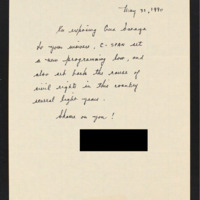 May 30, 1990
In exposing Gus Savage
to your viewers, C-SPAN set
a new programming low, and
also set back the cause of
civil rights in this country
several light years.
Shame on you!